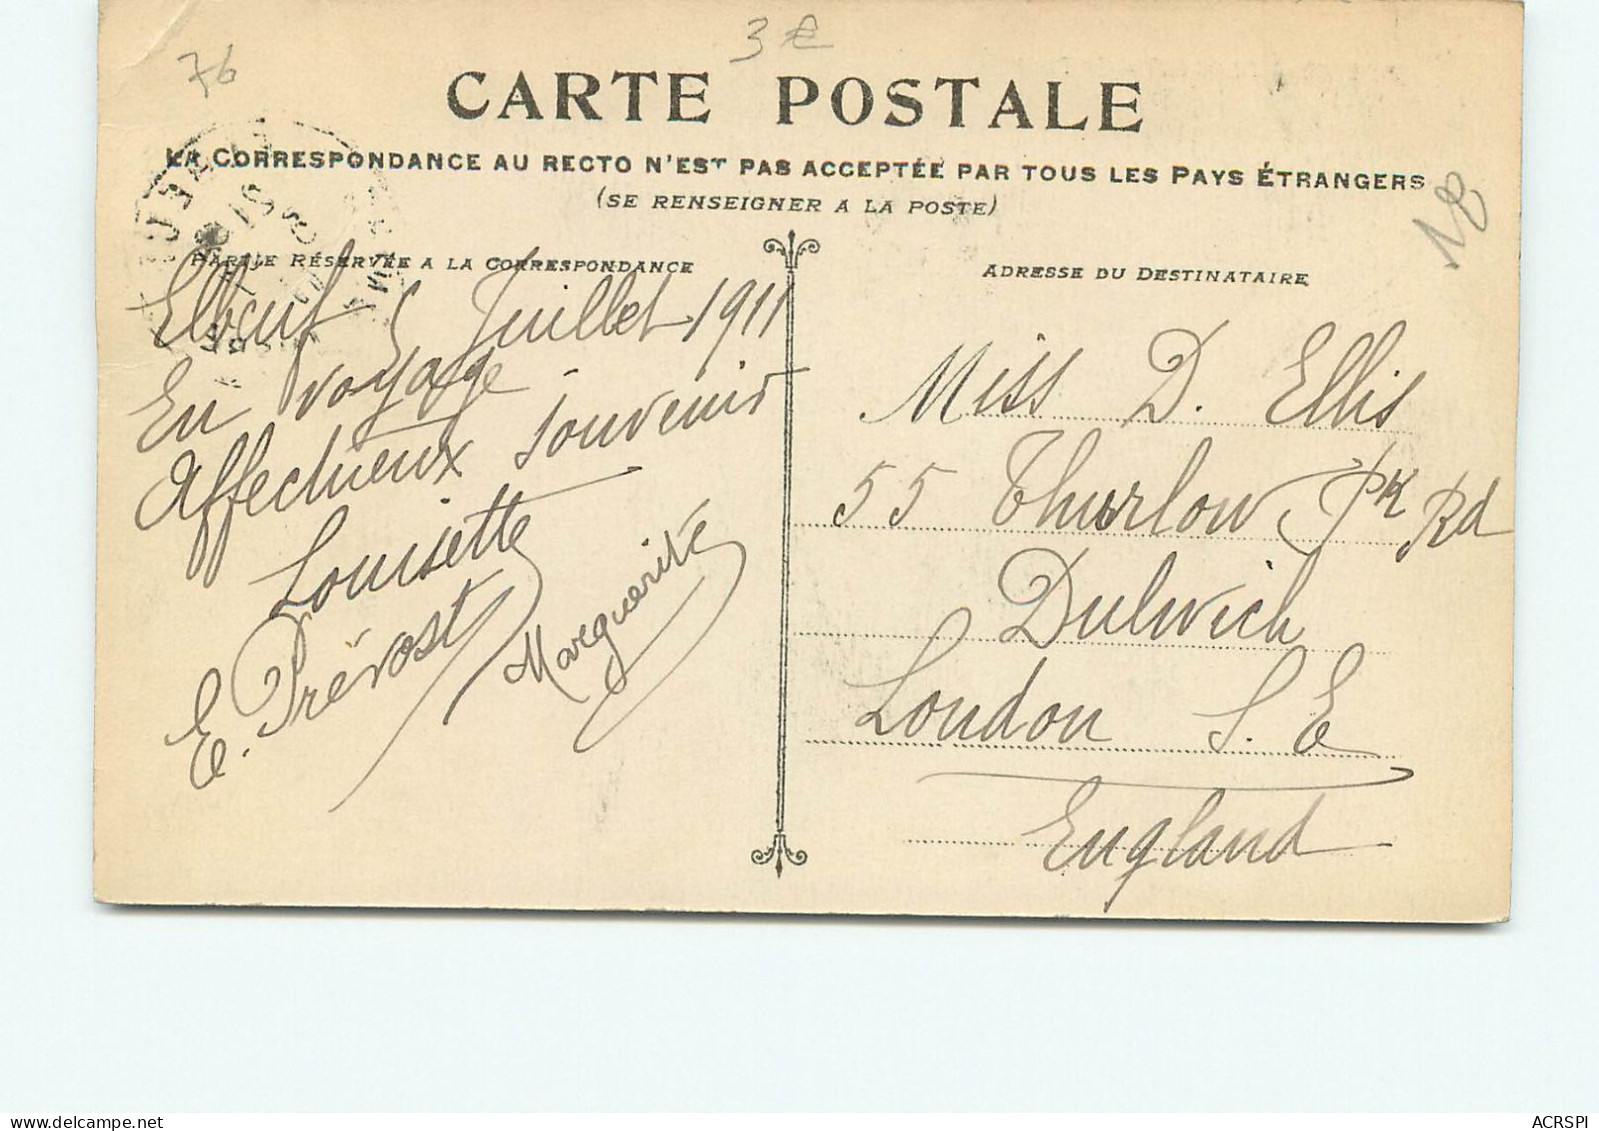 76
3 €
CARTE POSTALE
LA CORRESPONDANCE AU RECTO N'EST PAS ACCEPTÉE PAR TOUS LES PAYS ÉTRANGERS
(SE RENSEIGNER A LA POSTE)
18
PARTIE RÉSERVÉE A LA CORRESPONDANCE
Elbeuf 5 Juillet 1911
En voyage
affectueux souvenir
Louisette
E. Prévost
Marguerite
ADRESSE DU DESTINATAIRE
Miss D. Ellis
55 Thurlow Pk Rd
Dulwich
London S. E
England
ACRSPI